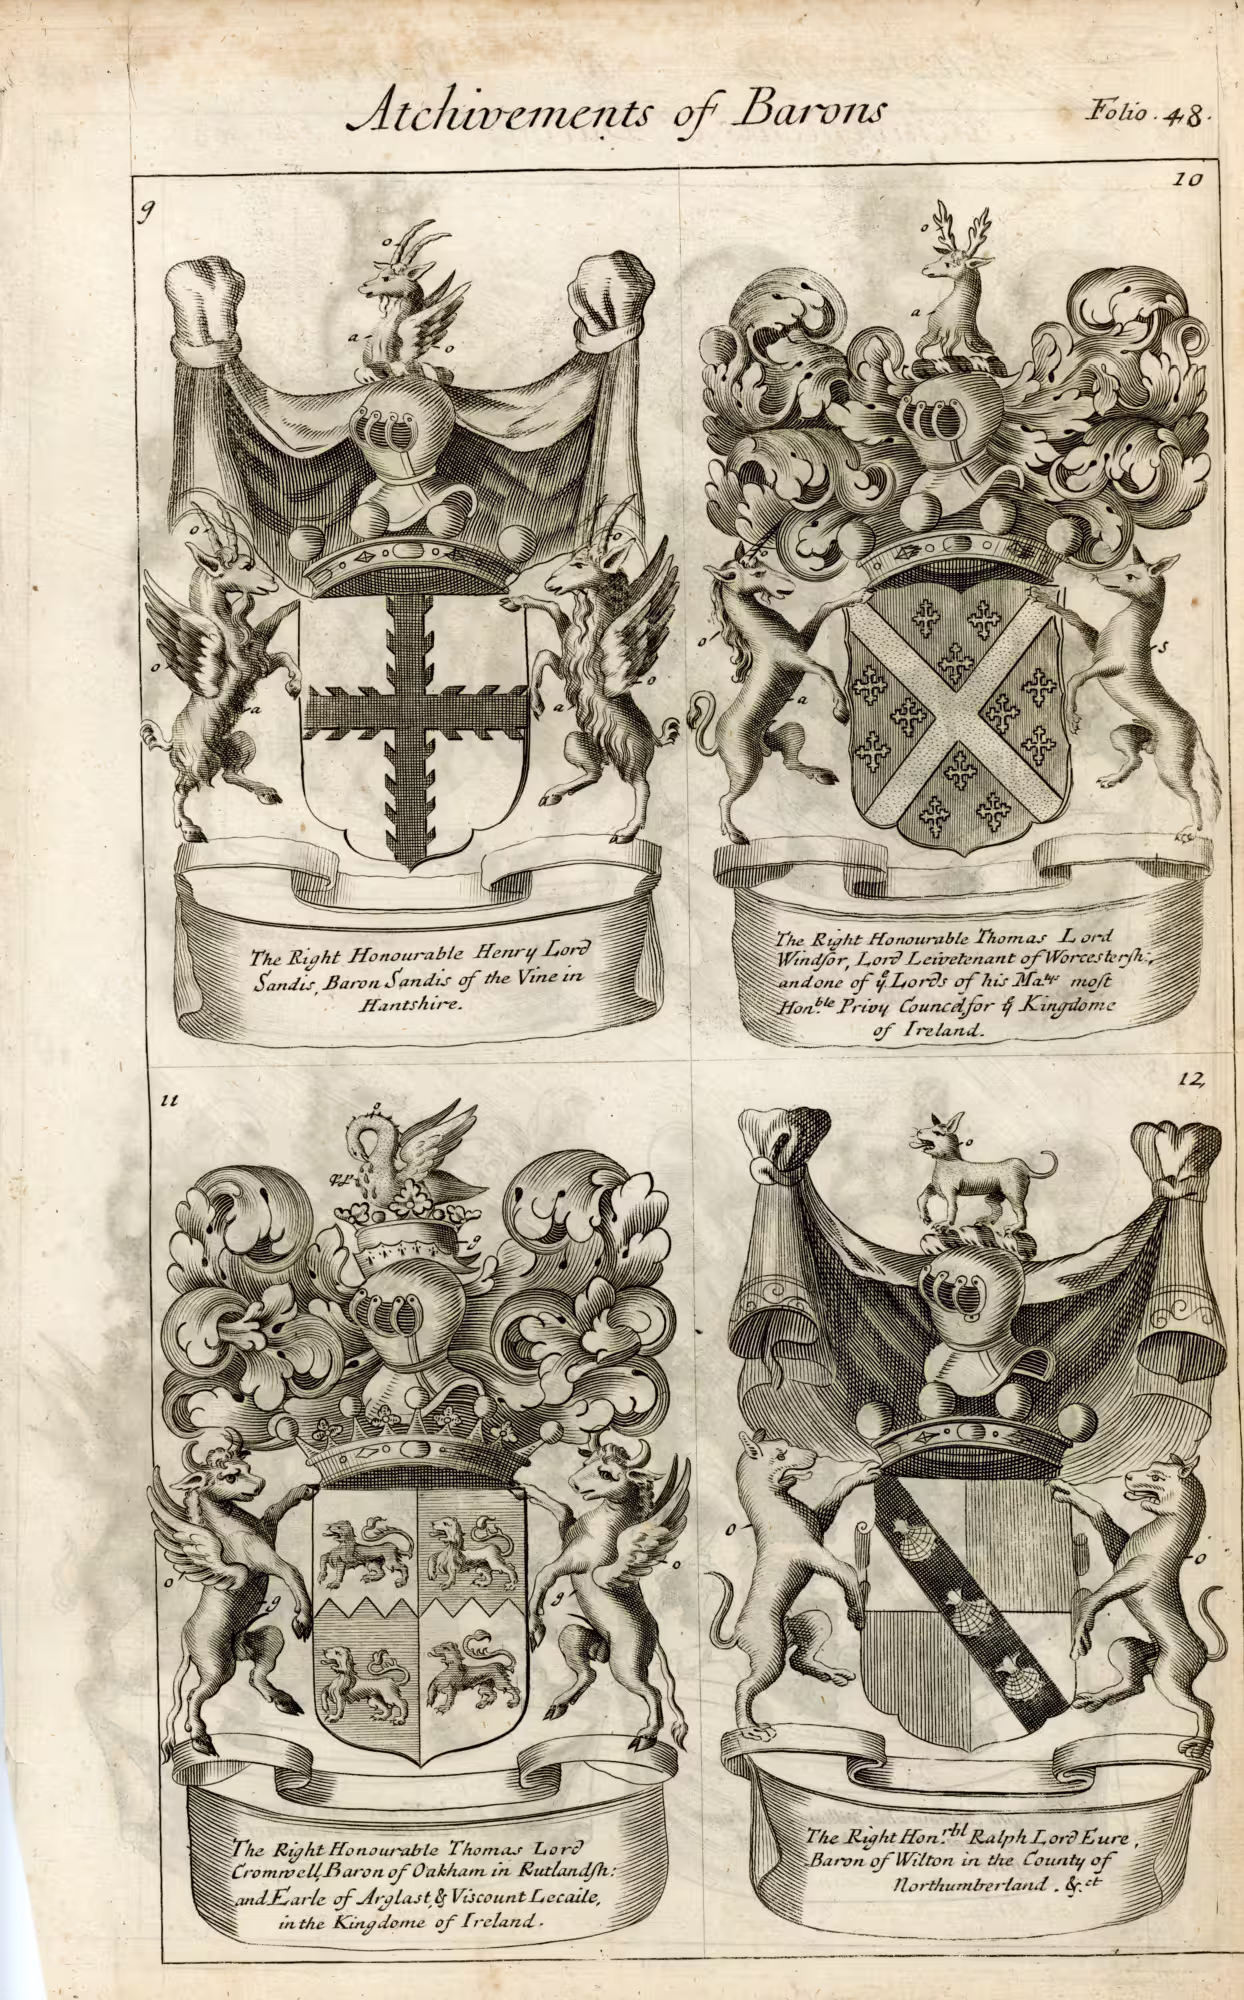 Atchivements of Barons
Folio . 48.
9
10
o
a
o
o
a
o
a
o
a
o
o
a
s
The Right Honourable Henry Lord
Sandis, Baron Sandis of the Vine in
Hantshire.
The Right Honourable Thomas Lord
Windsor, Lord Leivetenant of Worcestersh:,
and one of ye Lords of his Maties most
Hon.ble Privy Councel for ye Kingdome
of Ireland.
11
12,
o
o
g
o
g
o
g
o
o
The Right Honourable Thomas Lord
Cromwell, Baron of Oakham in Rutlandsh:
and Earle of Arglast, & Viscount Lecaile,
in the Kingdome of Ireland.
The Right Hon.rbl Ralph Lord Eure,
Baron of Wilton in the County of
Northumberland . &.ct